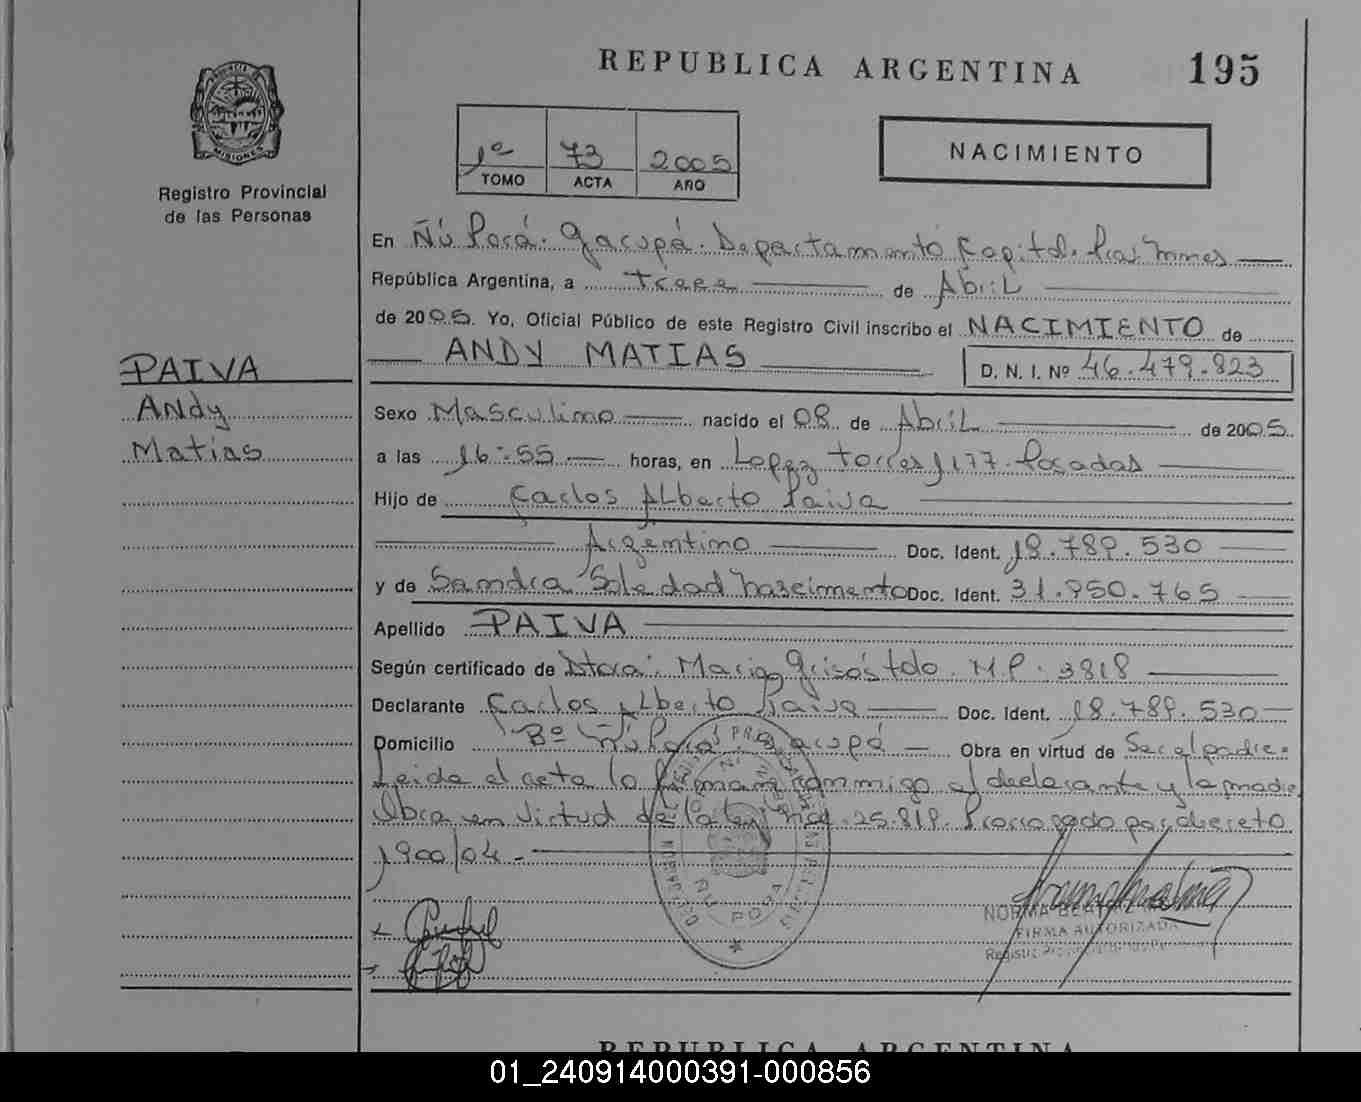 REPUBLICA ARGENTINA
195
PROVINCIA DE
MISIONES
Registro Provincial
de las Personas
1º 73 2005
TOMO ACTA AÑO
NACIMIENTO
En Ñú Porá. Garupá. Departamento Capital. Mnes
República Argentina, a Trece de Abril
de 2005. Yo, Oficial Público de este Registro Civil inscribo el NACIMIENTO de
ANDY MATIAS D. N. I. Nº 46.479.823
PAIVA
Andy
Matias
Sexo Masculino nacido el 08 de Abril de 2005.
a las 16:55 horas, en Lopez Torres 1177. Posadas
Hijo de Carlos Alberto Paiva
Argentino Doc. Ident. 18.789.530
y de Sandra Soledad Nascimento Doc. Ident. 31.950.765
Apellido PAIVA
Según certificado de Dtora. M.P. 3818
Declarante Carlos Alberto Paiva Doc. Ident. 18.789.530
Domicilio Bº Ñú Porá Garupá Obra en virtud de Ser el padre.
Leida el acta la firman conmigo el declarante y la madre
Obra en virtud de la ley nac. 25.819. Prorrogado por decreto
1900/04.-
ÑU PORA
NORMA
FIRMA AUTORIZADA
REPUBLICA ARGENTINA
01_240914000391-000856